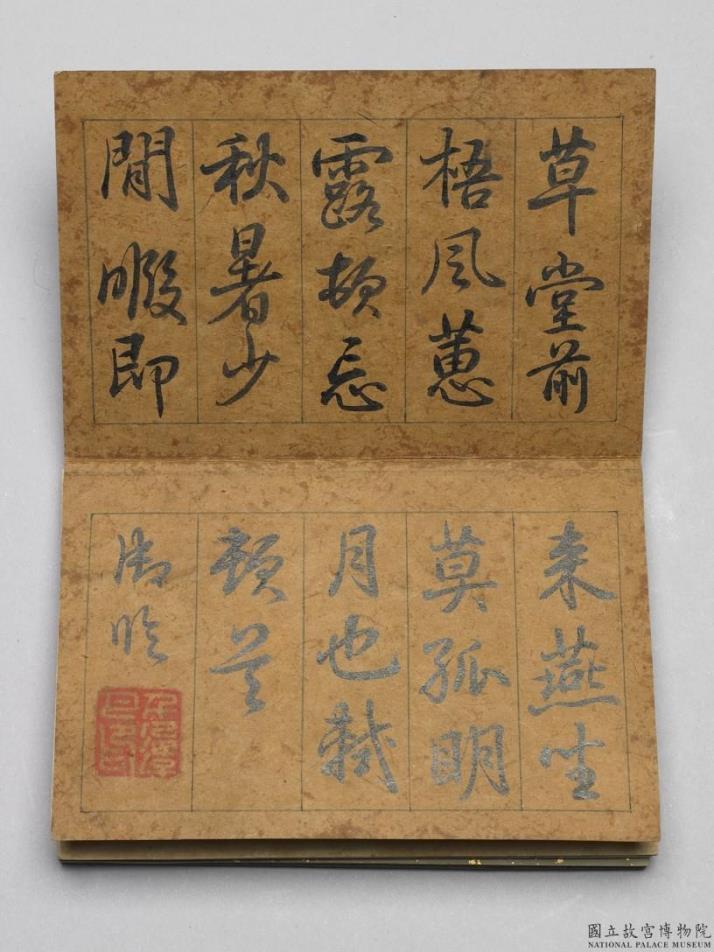 草堂前
梧風蕙
露頓忘
秋暑少
閒暇即
來燕坐
莫孤明
月也軾
頓首
御臨
國立故宮博物院
NATIONAL PALACE MUSEUM